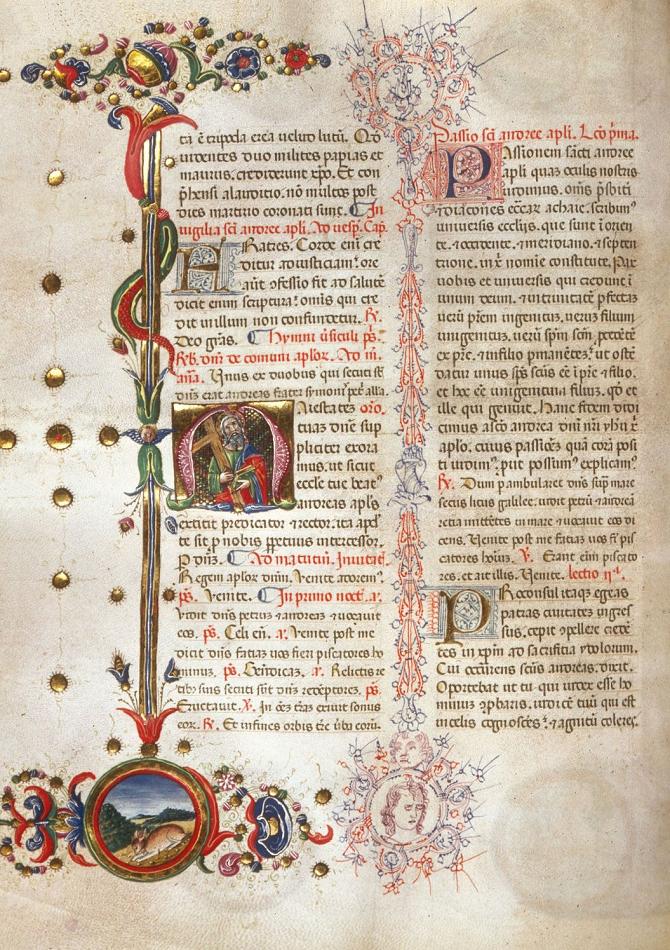 ta ē tripoda erea velut lutū. Qd̄
videntes duo milites papias et
maurus, crediderunt xp̄o. Et con
p̄hensi a laudicio, nō multos post
dies martirio coronati sunt. In
vigilia sc̄i andree apli. Ad vesp̄. Cap.
Fratres. Corde eni cre
ditur ad iusticiam: ore
aūt ɔfessio fit ad salutē
dicit enim scriptura: omis qui cre
dit in illum non confundetur. R̷.
Deo grās. Hymni ūsiculi p̄s.
de comuni aplor. Ad m.
aña. Unus ex duobus qui secuti sē
dn̄m erat andreas frater symonis petri alla.
Maiestatē oro.
tuaz dn̄e sup
pliciter exora
mus. ut sicut
eccle tue beat
andreas apls
extitit predicator et rector. ita apd̓
te sit p nobis ppetuus intercessor.
P dn̄z. Ad matutin̄. Invitat.
Regem aplor dn̄m. Venite adorem.
p̄s. Venite. In primo noct. a.
Vidit dn̄s petrum et andreas et vocavit
eos. p̄s. Celi en̄. a. Venite post me
dicit dn̄s faciaz vos fieri piscatores ho
minuz. p̄s. Benedicaz. a. Relictis re
tibz suis secuti sūt dn̄z redeptores. p̄s.
Eructavit. V. In oēz trāz exivit sonus
eor. R̷. Et in fines orbis tre ūba eorū.
Passio sc̄i andree apli. Lc̄o p̄ma.
Passionem sancti andree
apli quaz oculis nostris
vidimus. omīs p̄sbiti
et diacones ecc̄ar achaie. scribim
universis ecclijs. que sunt ī orien
te. et occidente. et meridiano. et septen
tione. in x̄ nomie constitute. Pax
vobis et universis qui credunt ī
unum deum. et in trinitate perfectaz
verū p̄rem ingenituz. veruz filium
unigenituz. verū spm̄ scm̄. pcedētē
ex p̄re. et in filio pmanētez. ut ostē
datur unus sps̄ scūs eē ī p̄re et filio.
et hoc eē unigenitum filiuz. qd̓ et
ille qui genuit. Hanc fidem didi
cimus a sc̄o andrea dn̄i nr̄i yhū x̄
aplo. cuius passiōez quā corā posi
ti vidim. put possum explicam.
R̷. Dum pambularet dn̄s sup̄ mare
secus litus galilee. vidit petrū et andreā
retia mittētes in mare et vocavit eos di
cens. Venite post me faciaz vos fi pis
catores hoim. V. Erant eim piscato
res. et ait illis. Venite. lectio ija.
Proconsul itaqz egeas
patras civitatez ingres
sus. cepit ɔpellere credē
tes in xp̄m ad sacrificia ydolorum.
Cui occurrens scūs andreas. dixit.
Oportebat ut tu qui iudex esse ho
minuz ɔpbaris. iudicē tuū qui est
in celis cognosces. et agnitū coleres.